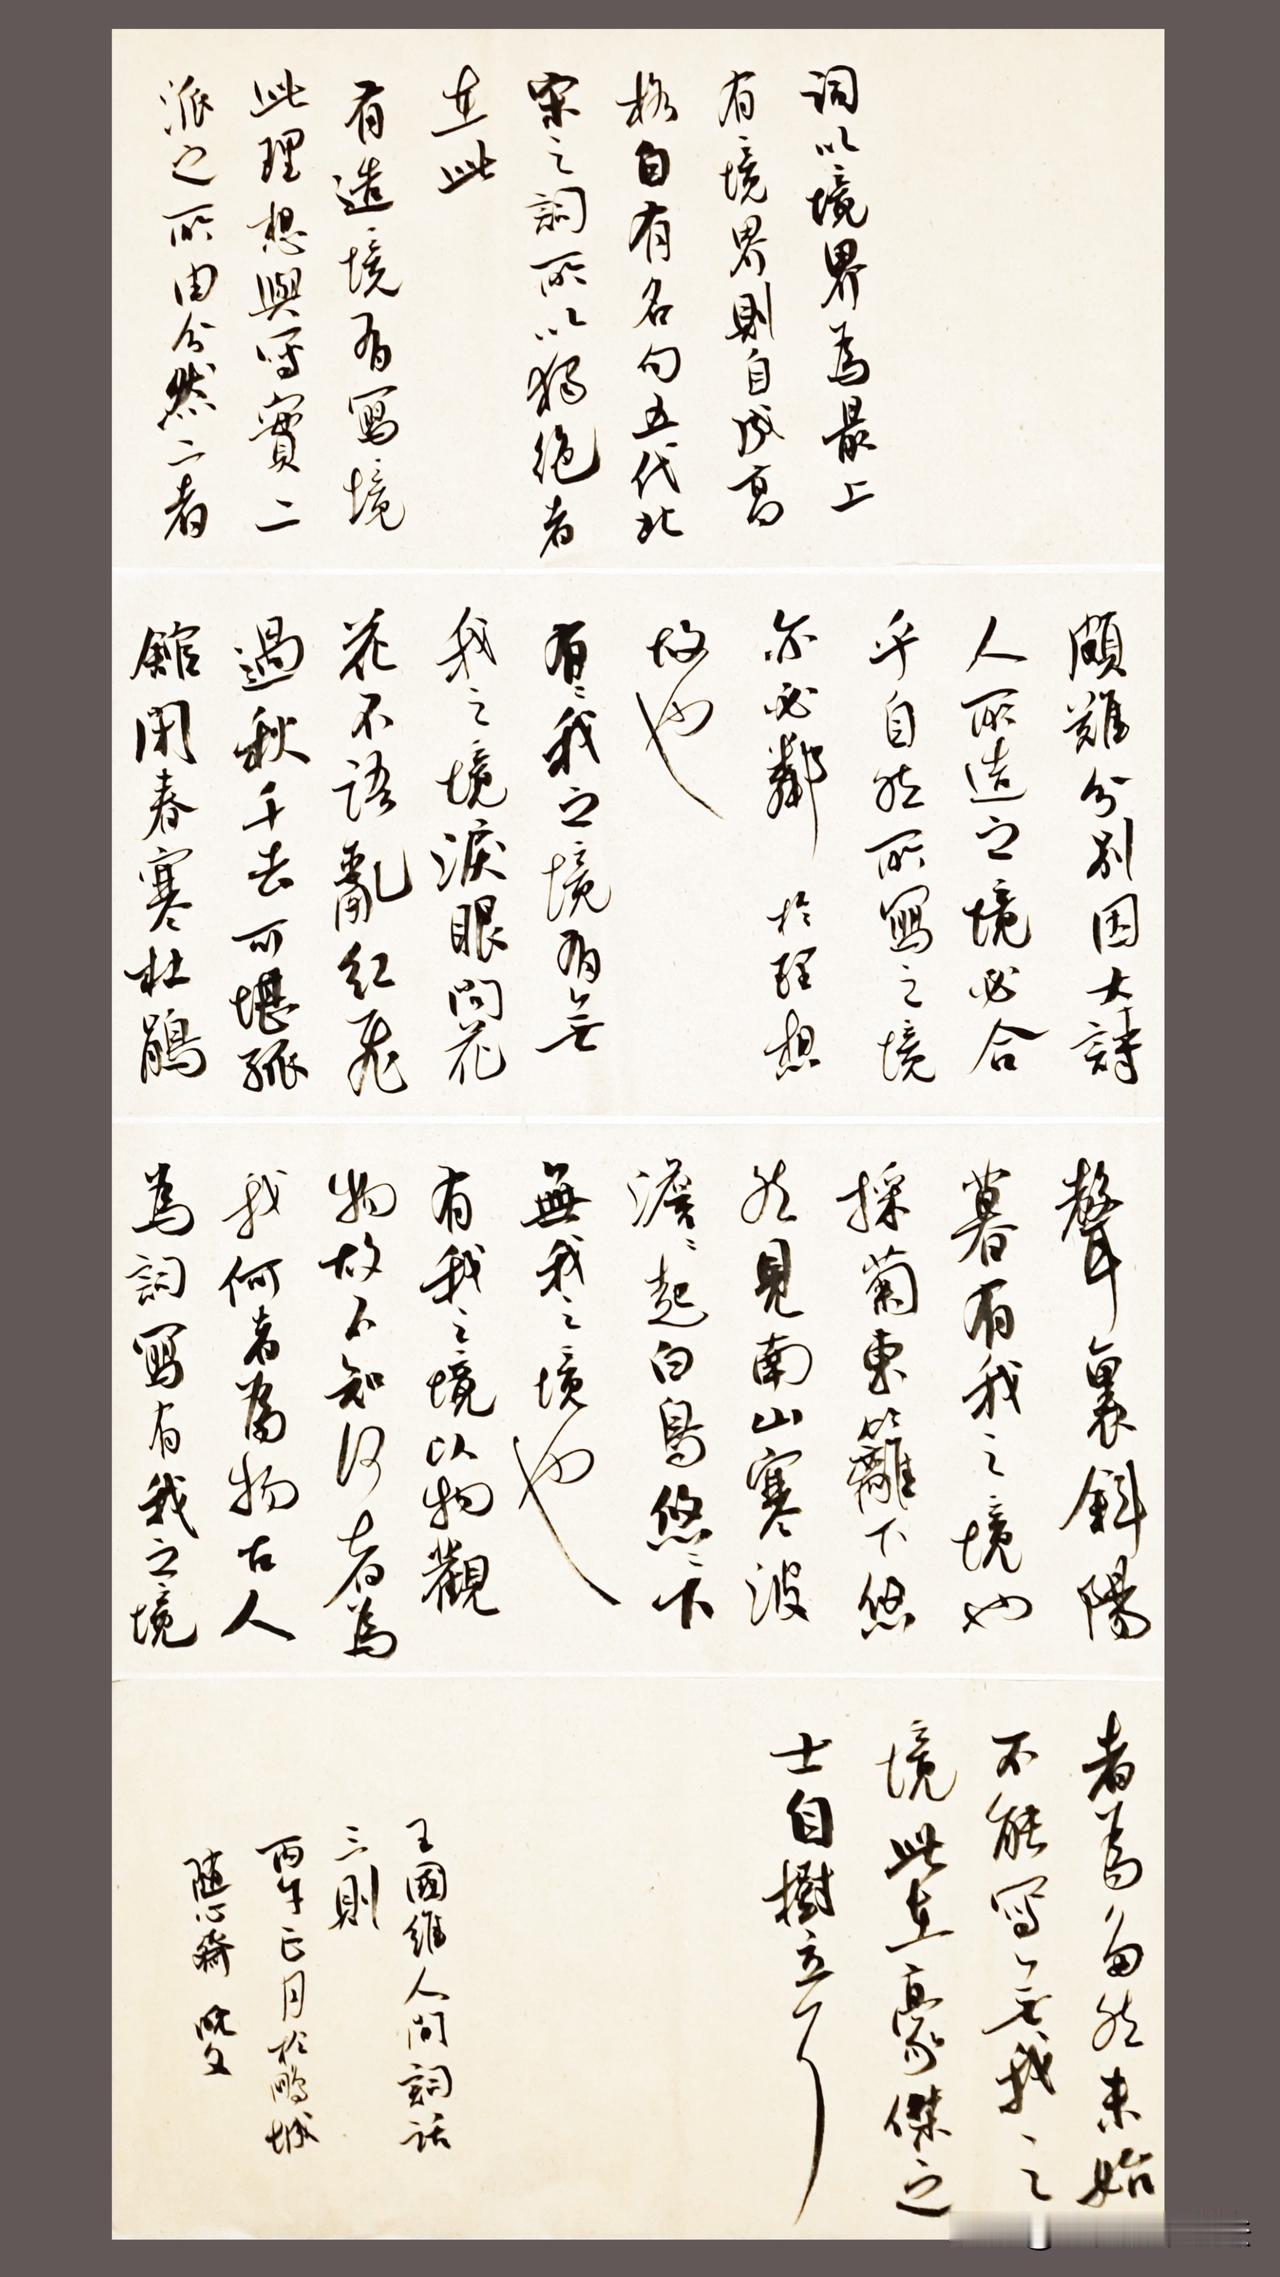 詞以境界為最上
有境界則自成高
格自有名句五代北
宋之詞所以獨絕者
在此
有造境有寫境
此理想與寫實二
派之所由分然二者
頗難分別因大詩
人所造之境必合
乎自然所寫之境
亦必鄰於理想
故也
有有我之境有無
我之境淚眼問花
花不語亂紅飛
過秋千去可堪孤
館閉春寒杜鵑
聲裏斜陽
暮有我之境也
採菊東籬下悠
然見南山寒波
澹澹起白鳥悠悠下
無我之境也
有我之境以物觀
物故不知何者為
我何者為物古人
為詞寫有我之境
者為多然未始
不能寫無我之
境此在豪傑之
士自樹立耳
王國維人間詞話
三則
丙午正月於鵬城
隨心齋